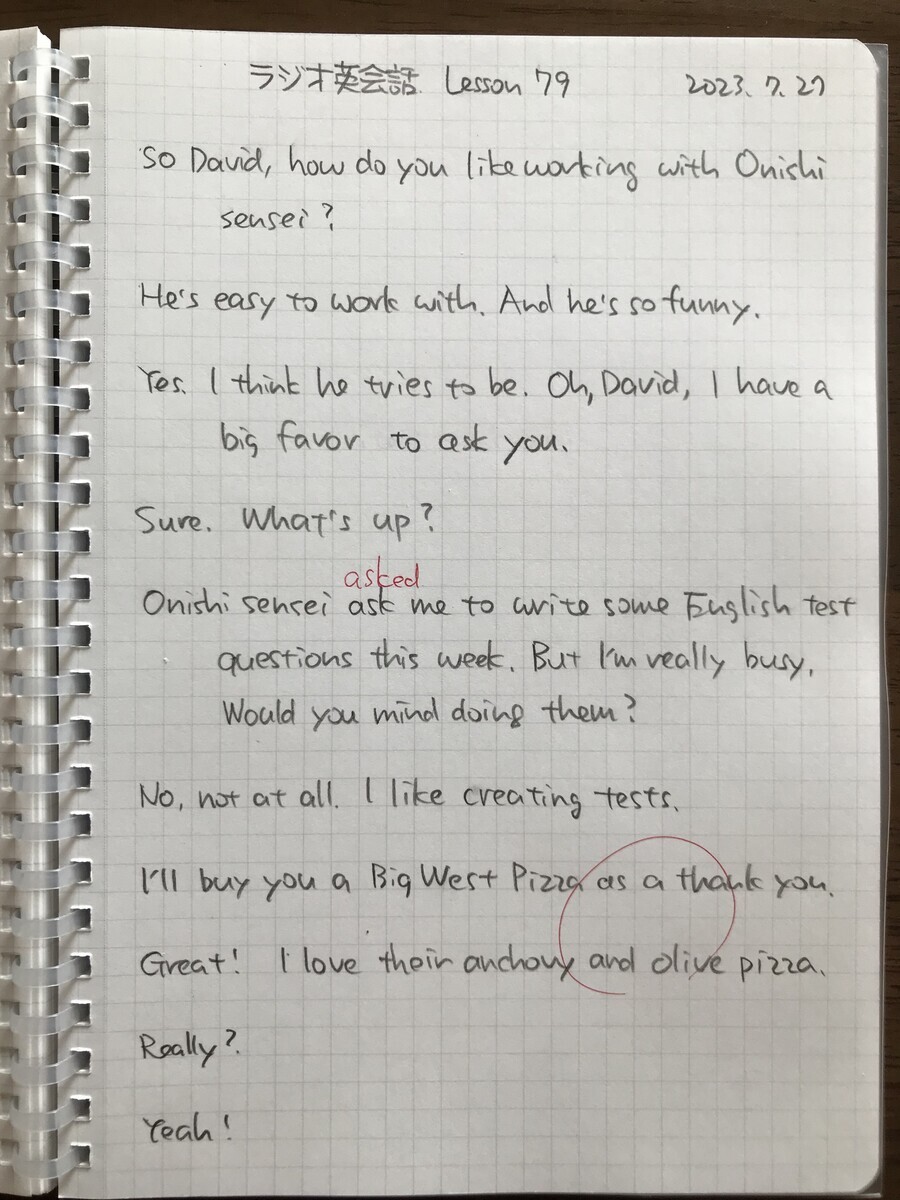 ラジオ英会話 Lesson 79 2023.7.27
So David, how do you like working with Onishi
sensei?
He's easy to work with. And he's so funny.
Yes. I think he tries to be. Oh, David, I have a
big favor to ask you.
Sure. What's up?
asked
Onishi sensei ask me to write some English test
questions this week. But I'm really busy.
Would you mind doing them?
No, not at all. I like creating tests.
I'll buy you a Big West Pizza as a thank you.
Great! I love their anchovy and olive pizza.
Really?
Yeah!